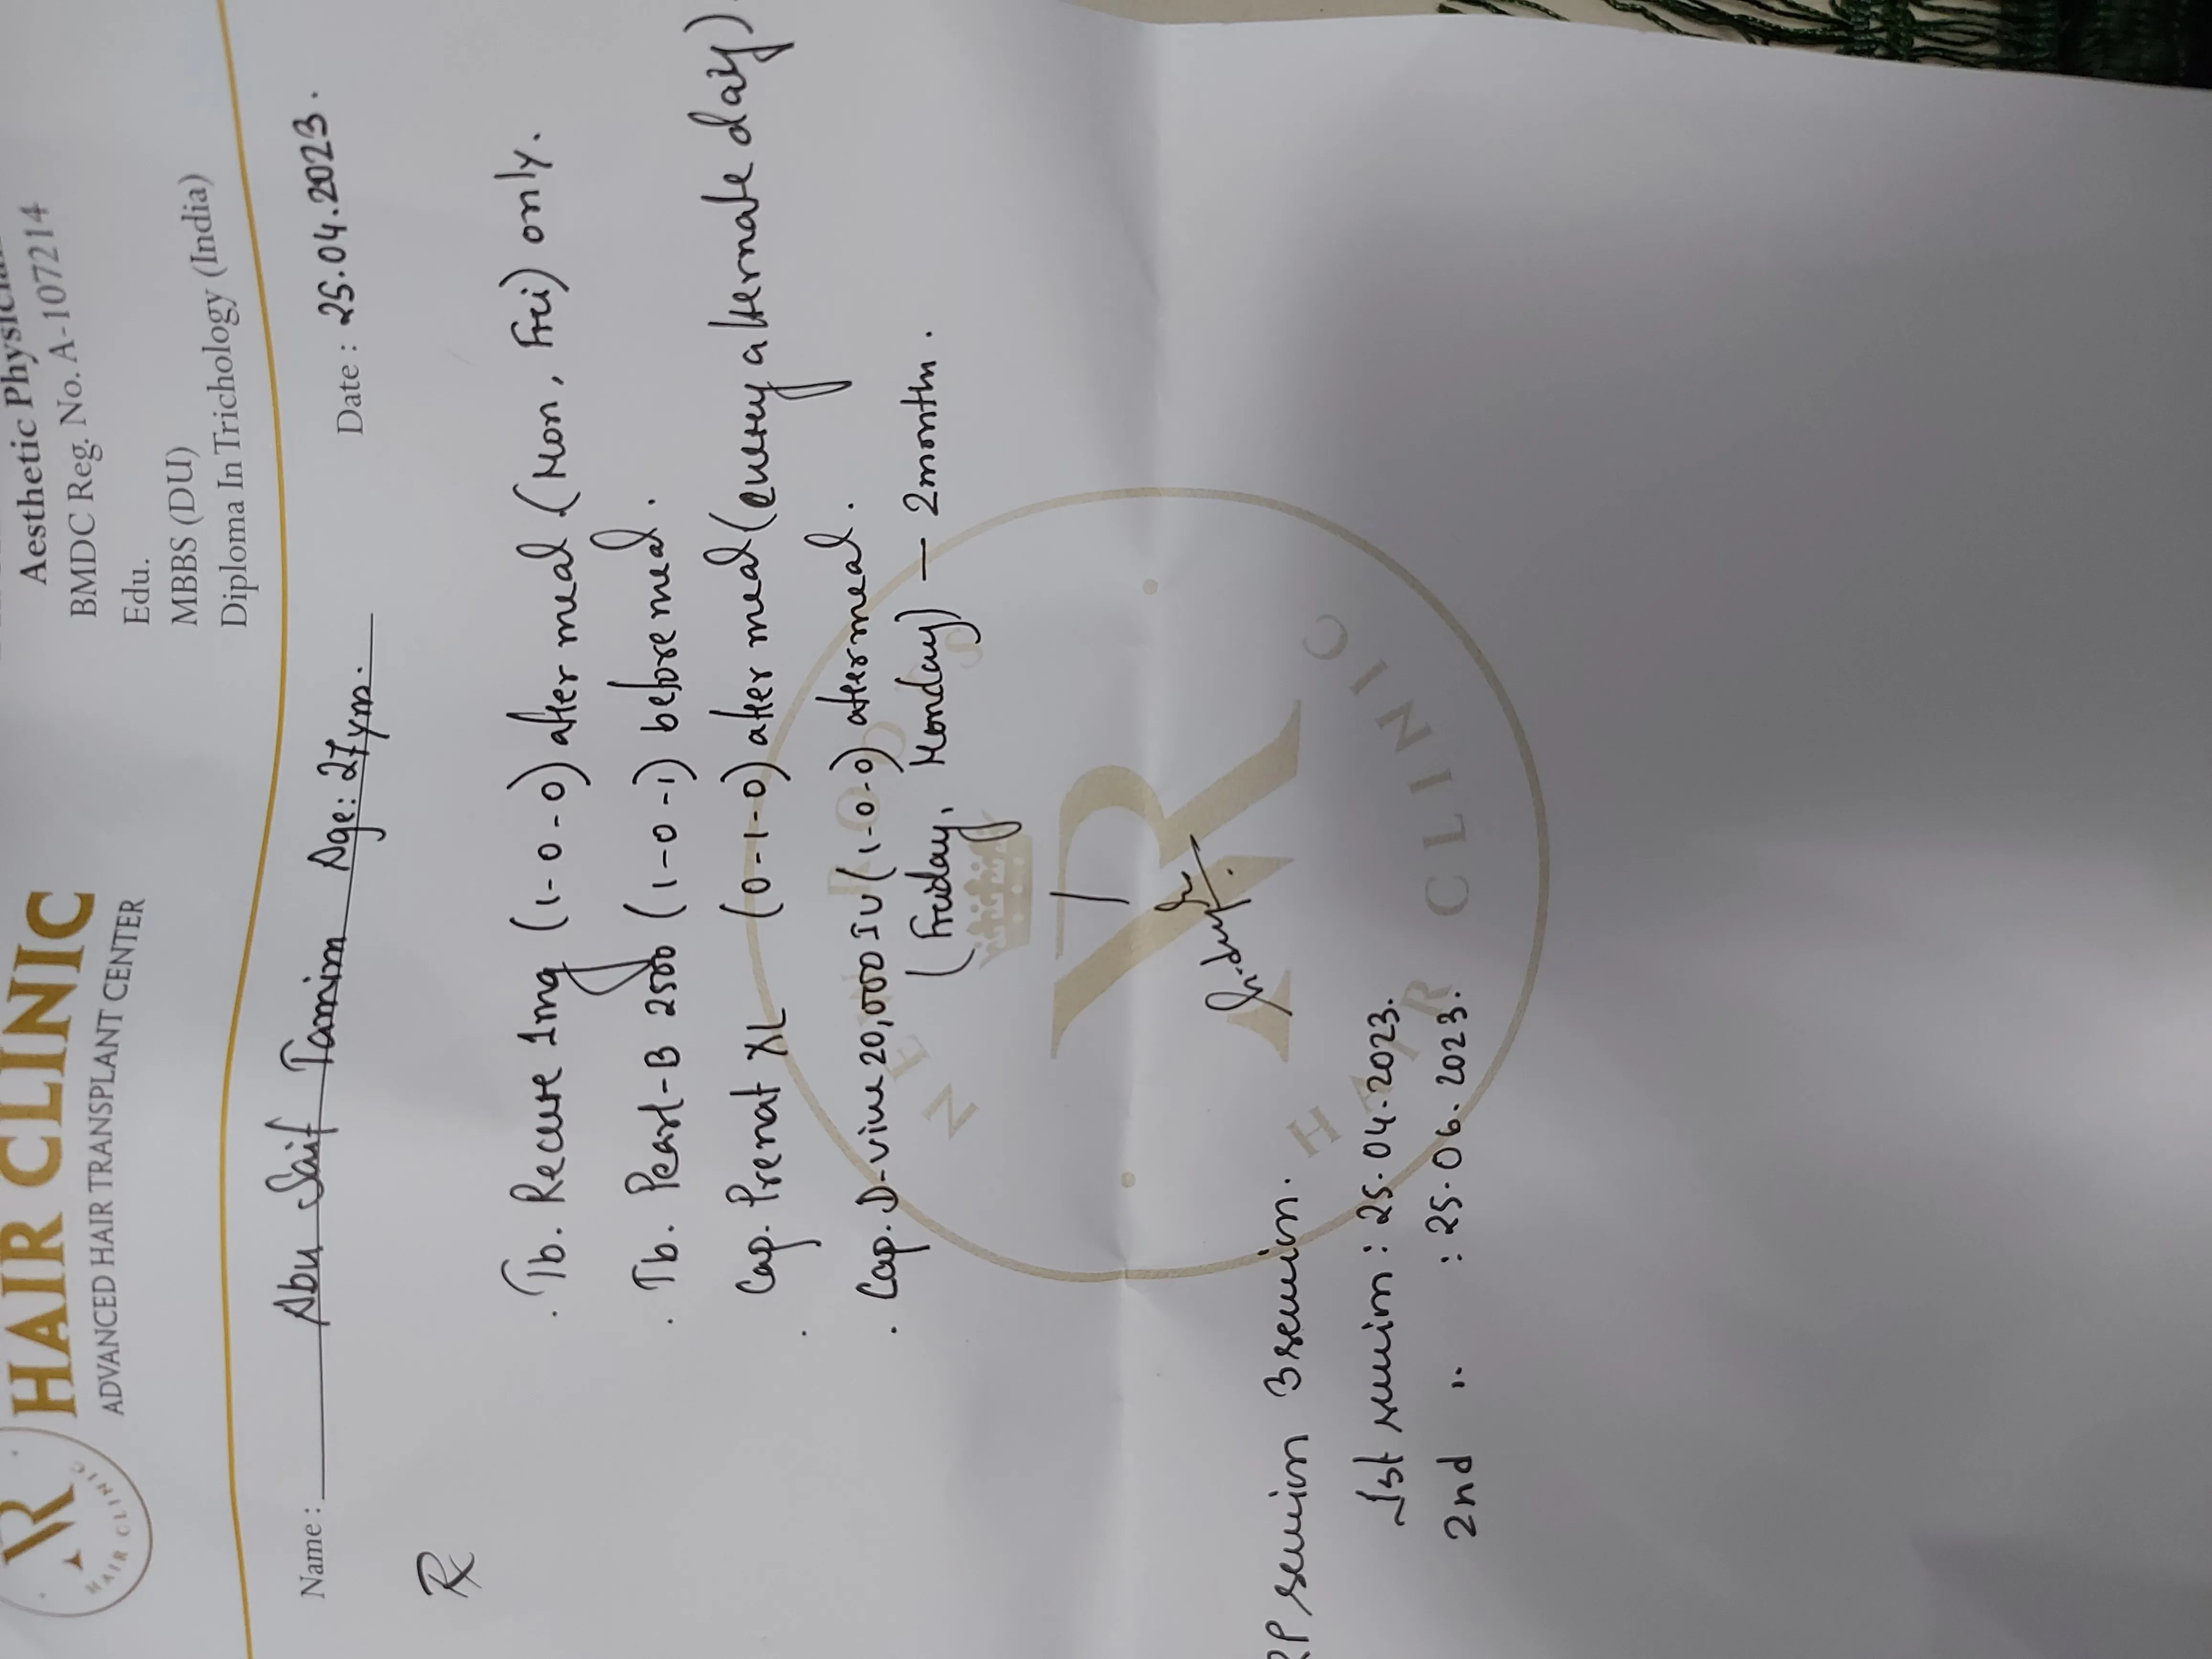 HAIR CLINIC
ADVANCED HAIR TRANSPLANT CENTER
HAIR CLINIC
Aesthetic Physician
BMDC Reg. No. A-107214
Edu.
MBBS (DU)
Diploma In Trichology (India)
Name: Abu Saif Tamim Age: 27 yrs. Date: 25.04.2023.
Rx
. Tb. Recure 1mg (1-0-0) after meal (Mon, Fri) only.
. Tb. Pearl-B 2500 (1-0-1) before meal.
. Cap. Prenat XL (0-1-0) after meal (every alternate day).
. Cap. D-vine 20,000 IU (1-0-0) after meal.
(Friday, Monday) — 2 months.
HAIR CLINIC
RP session 3 session.
1st session: 25.04.2023.
2nd ,, : 25.06.2023.